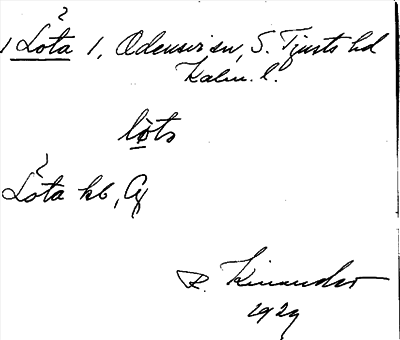 2
1 Lota 1, Odensvi sn, S. Tjusts hd
Kalm. l.
lo̤ts
2
Lota kb,
R. Kinander
1929